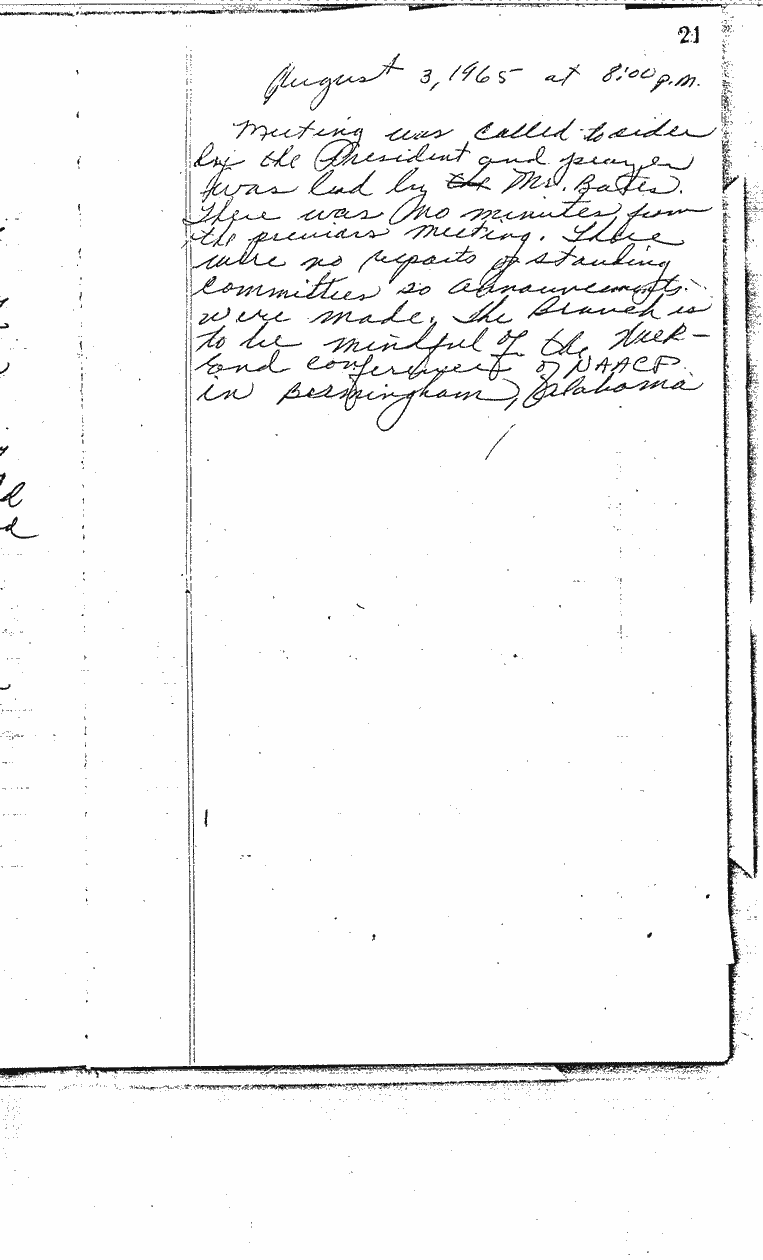 21
August 3, 1965 at 8:00 p.m.
Meeting was called to order
by the President and prayer
was led by the Mr. Bates.
There was no minutes from
the previous meeting. There
were no reports of standing
committies so announcements
were made. The Branch is
to be mindful of the Week-
end conference of NAACP
in Bermingham, Alabama